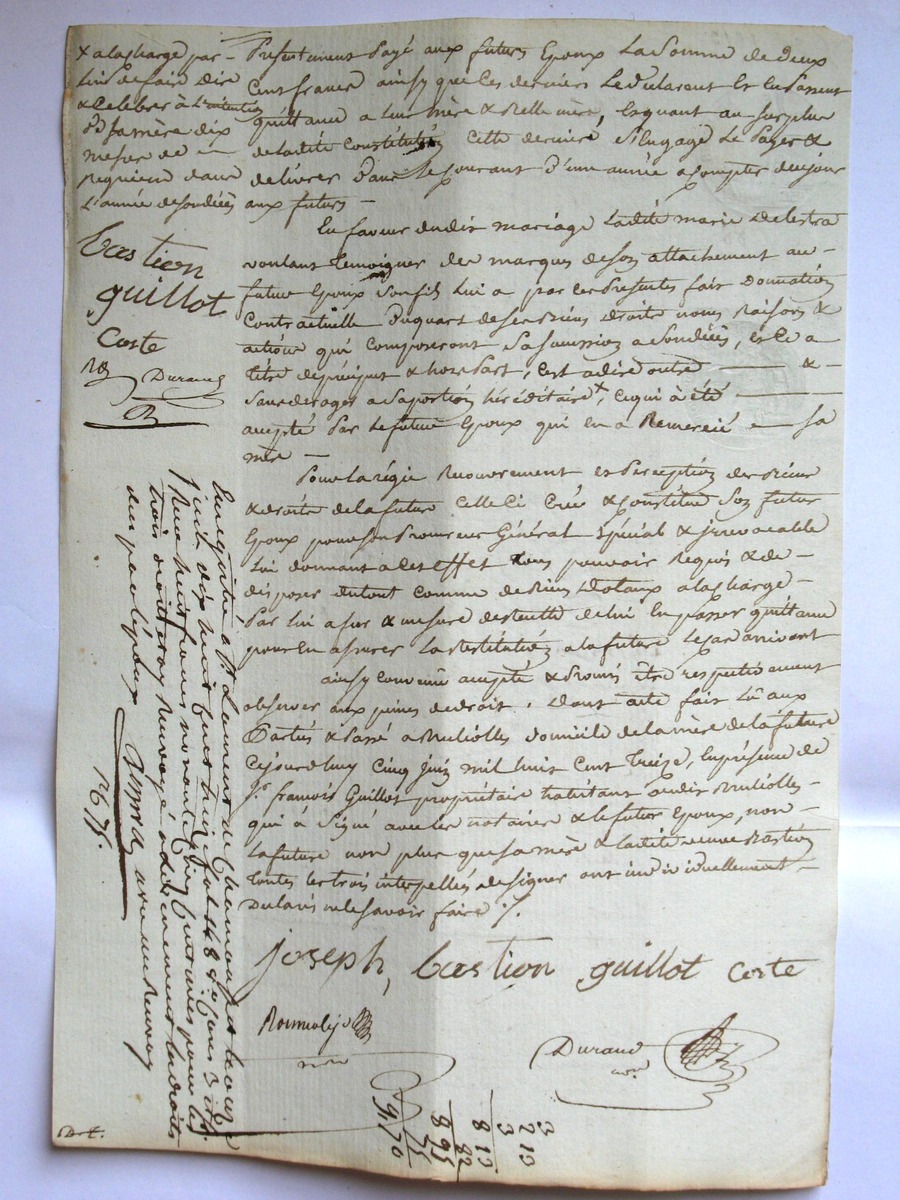 présentement payé aux futurs Epoux la somme de deux
cent francs ainsy que ces derniers le déclarent et en passent
quittance a leur mère & belle mère, & quant au surplus
de ladite constitution cette dernière s'engage le payer &
délivrer dans le courant d'une année a compter de ce jour
aux futurs —
En faveur dudit mariage ladite marie delestra
voulant temoigner des marques de son attachement au
futur Epoux son fils lui a par ces présentes fait donnation
contractuelle du quart de ses biens droits noms raisons &
actions qui composeront sa succession a son décès, & ce a
titre de préciput & hors part, c'est a dire outre — & —
sans déroger a sa portion héréditaire +, ce qui à été —
accepté par le futur Epoux qui en a remercié — sa
mère —
Pour la régie recouvrement et perception des biens
& droits de la future celle ci crée & constitue son futur
Epoux pour son procureur Général spécial & irrévocable
lui donnant a cet effet tous pouvoir requis & de
disposer du tout comme de biens dotaux a la charge
par lui a fur & mesure de recette de lui en passer quittance
pour en assurer la restitution a la future le cas arrivant
ainsy convenu accepté & promis être respectivement
observer aux peines de droit. dont acte fait lû aux
parties & passé a domicile de la mère de la future
cejourd'huy cinq juin mil huit cent treize, en présence de
Sr. françois Guillot propriétaire habitant audit
qui à signé avec les notaires & le futur Epoux, non
la future non plus que sa mère & ladite veuve Bastion
toutes les trois interpellées de signer ont individuellement
déclaré ne le savoir faire ./.
joseph, bastion guillot coste
Durand
nre
+ a la charge par
lui de faire dire
& célébrer à l'intention
de sa mère dix
messes de
requiem dans
l'année de son décès
bastion
guillot
coste
Durand
Enregistré à St. Laurent de Chamousset le onze
juin dix huit cent treize fol. 148
Reçu huit francs nonante cinq centimes pour les
trois droits
dus par l'époux
3
2 13
3
8 13
82
8 95
75
9. 70